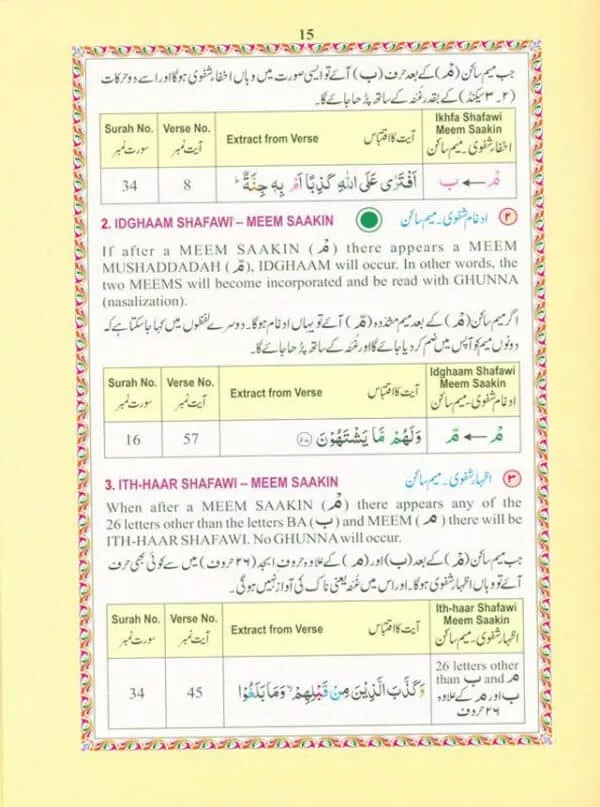 15
جب میم ساکن (مْ) کے بعد حرف (ب) آئے تو ایسی صورت میں وہاں اخفاء شفوی ہوگا اور اسے دو حرکات
(۲ ۔ ۳ سیکنڈ) کے بقدر غُنّہ کے ساتھ پڑھا جائے گا۔
Surah No. Verse No. Extract from Verse آیت کا اقتباس Ikhfa Shafawi
Meem Saakin
سورت نمبر آیت نمبر اخفاء شفوی۔ میم ساکن
34 8 اَفْتَرٰى عَلَى اللّٰهِ كَذِبًا اَمْ بِهٖ جِنَّةٌ ؕ مْ ← ب
2. IDGHAAM SHAFAWI – MEEM SAAKIN ادغام شفوی۔ میم ساکن ۲
If after a MEEM SAAKIN (مْ) there appears a MEEM
MUSHADDADAH (مّ), IDGHAAM will occur. In other words, the
two MEEMS will become incorporated and be read with GHUNNA
(nasalization).
اگر میم ساکن (مْ) کے بعد میم مشدّدہ (مّ) آئے تو یہاں ادغام ہوگا۔ دوسرے لفظوں میں کہا جا سکتا ہے کہ
دونوں میم کو آپس میں ضم کر دیا جائے گا اور غُنّہ کے ساتھ پڑھا جائے گا۔
Surah No. Verse No. Extract from Verse آیت کا اقتباس Idghaam Shafawi
Meem Saakin
سورت نمبر آیت نمبر ادغام شفوی۔ میم ساکن
16 57 وَلَهُمْ مَّا يَشْتَهُوْنَ ۵۷ مْ ← مّ
3. ITH-HAAR SHAFAWI – MEEM SAAKIN اظہار شفوی۔ میم ساکن ۳
When after a MEEM SAAKIN (مْ) there appears any of the
26 letters other than the letters BA (ب) and MEEM (م) there will be
ITH-HAAR SHAFAWI. No GHUNNA will occur.
جب میم ساکن (مْ) کے بعد (ب) اور (م) کے علاوہ حروف ابجد (۲۶ حروف) میں سے کوئی بھی حرف
آئے تو وہاں اظہار شفوی ہوگا۔ اور اس میں غُنّہ یعنی ناک کی آواز نہیں ہوگی۔
Surah No. Verse No. Extract from Verse آیت کا اقتباس Ith-haar Shafawi
Meem Saakin
سورت نمبر آیت نمبر اظہار شفوی۔ میم ساکن
26 letters other
than ب and م
34 45 وَكَذَّبَ الَّذِيْنَ مِنْ قَبْلِهِمْ ۙ وَمَا بَلَغُوْا ب اور م کے علاوہ
۲۶ حروف